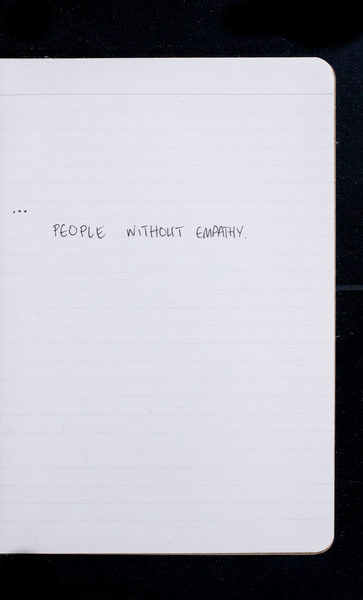 ...
PEOPLE WITHOUT EMPATHY.